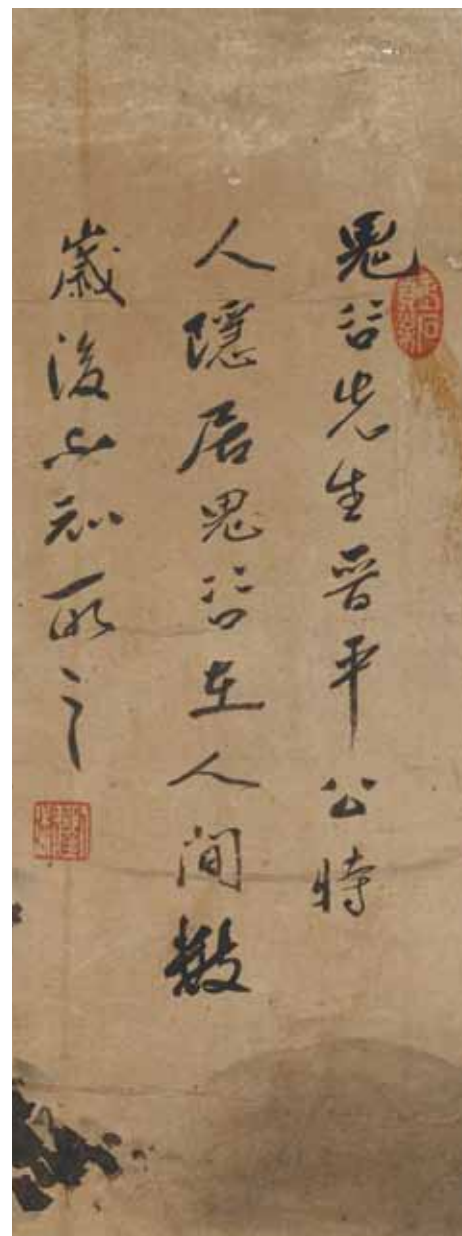 鬼谷先生晋平公時
人隱居鬼谷在人間數
歲後不知所之